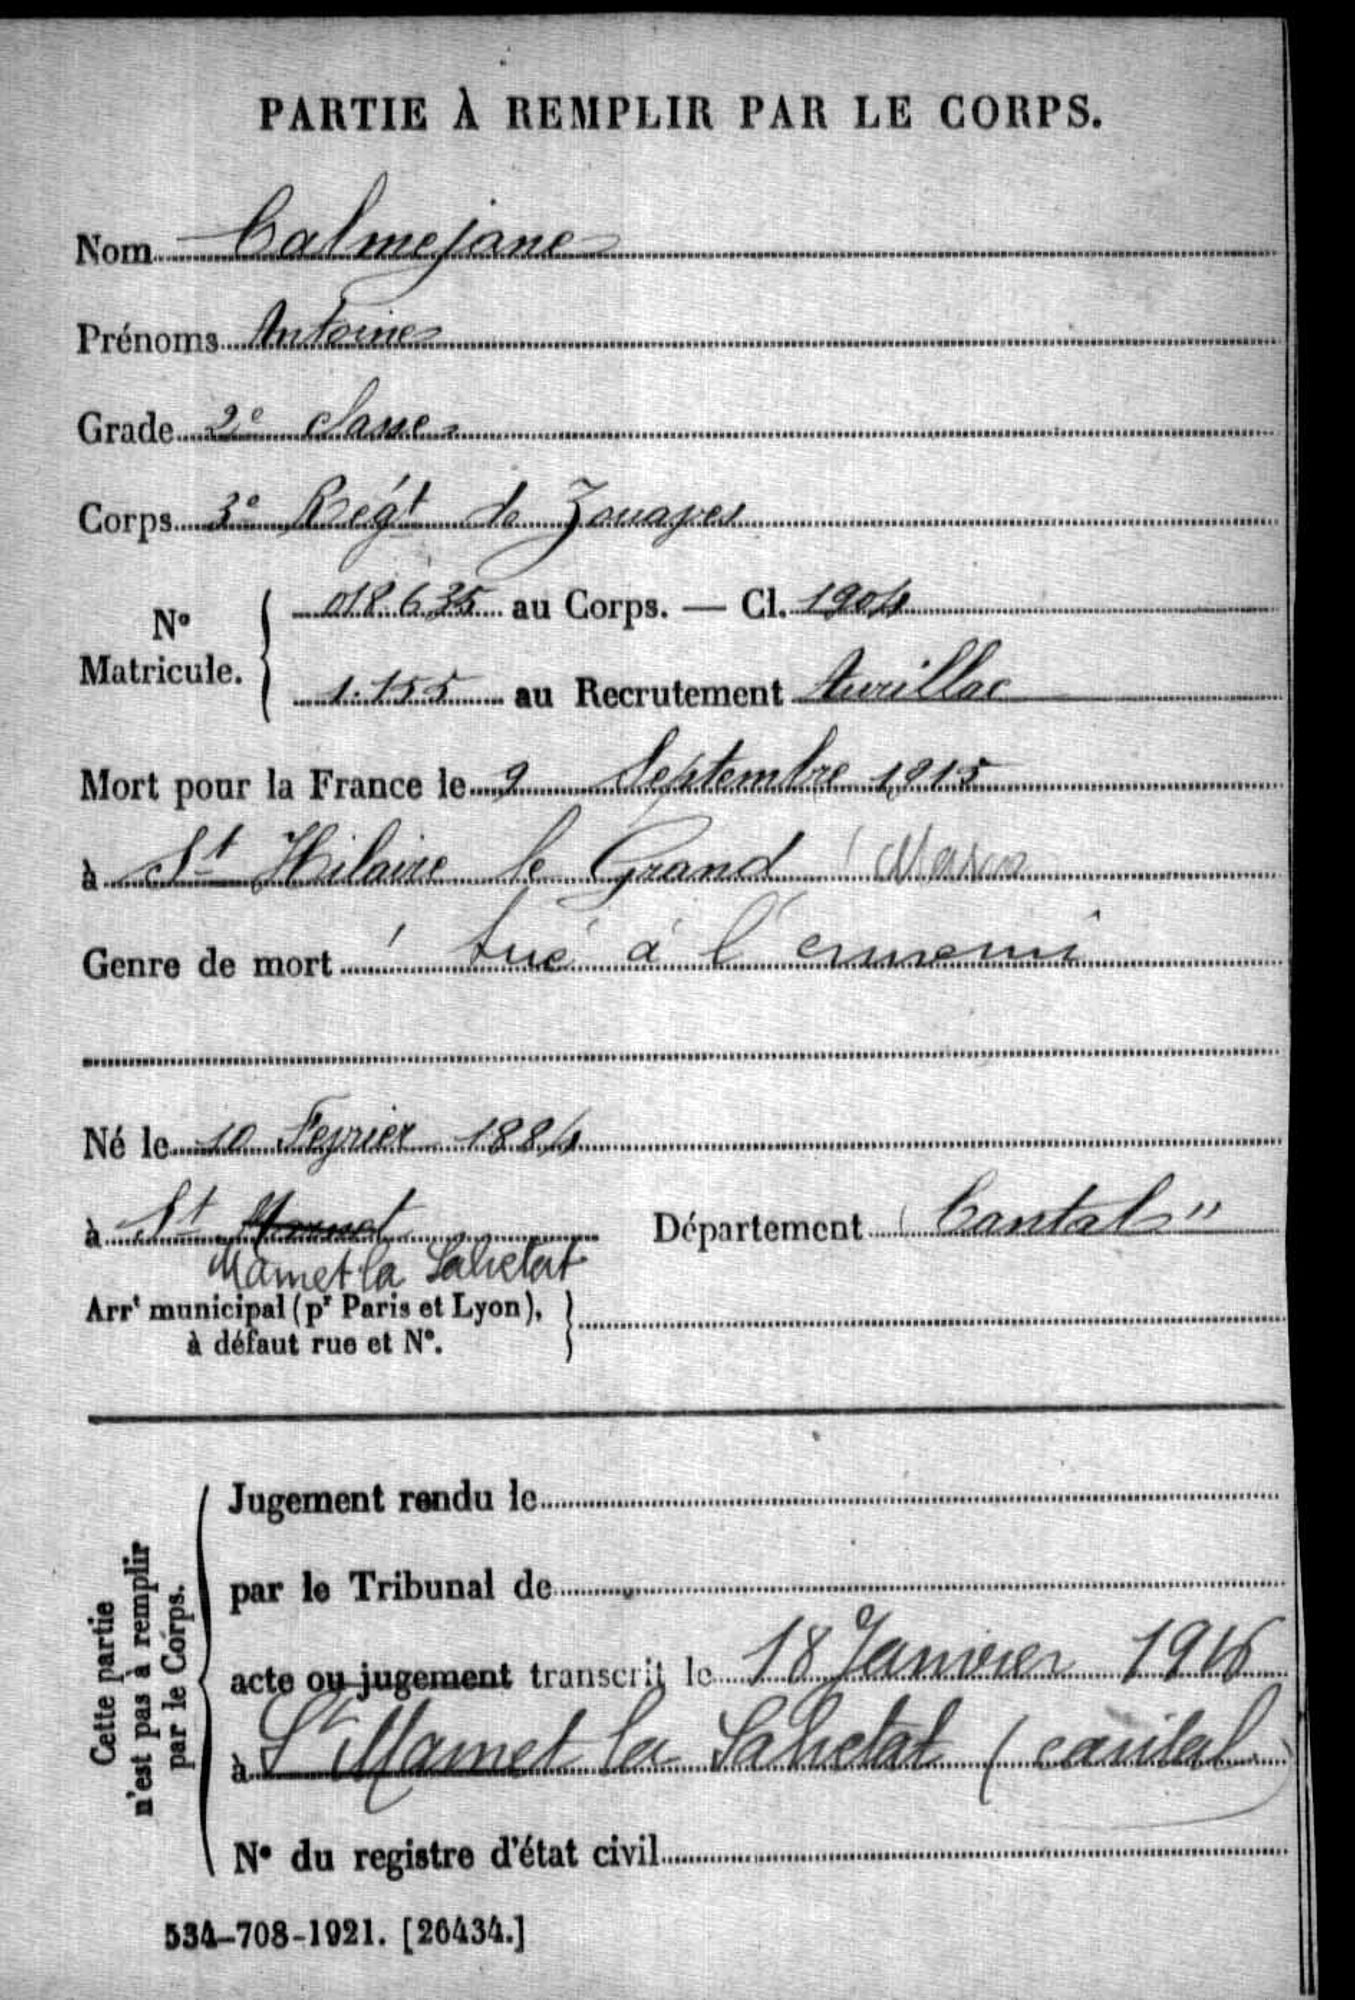 PARTIE À REMPLIR PAR LE CORPS.
Nom Calmejane
Prénoms Antoine
Grade 2e classe
Corps 3e Régt de Zouaves
No Matricule. 018635 au Corps. — Cl. 1904
1.155 au Recrutement Aurillac
Mort pour la France le 9 Septembre 1915
à St Hilaire le Grand (Marne
Genre de mort tué à l'ennemi
Né le 10 Février 1884
à St Mamet Département Cantal"
Mamet la Salvetat
Arrt municipal (pr Paris et Lyon),
à défaut rue et No.
Cette partie
n'est pas à remplir
par le Corps.
Jugement rendu le
par le Tribunal de
acte ou jugement transcrit le 18 Janvier 1916
à St Mamet la Salvetat (cantal)
No du registre d'état civil
534-708-1921. [26434.]